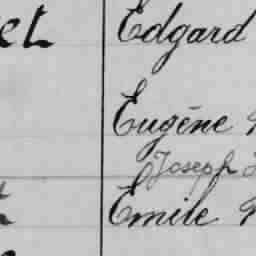 et Edgard
Eugène
Joseph
Emile